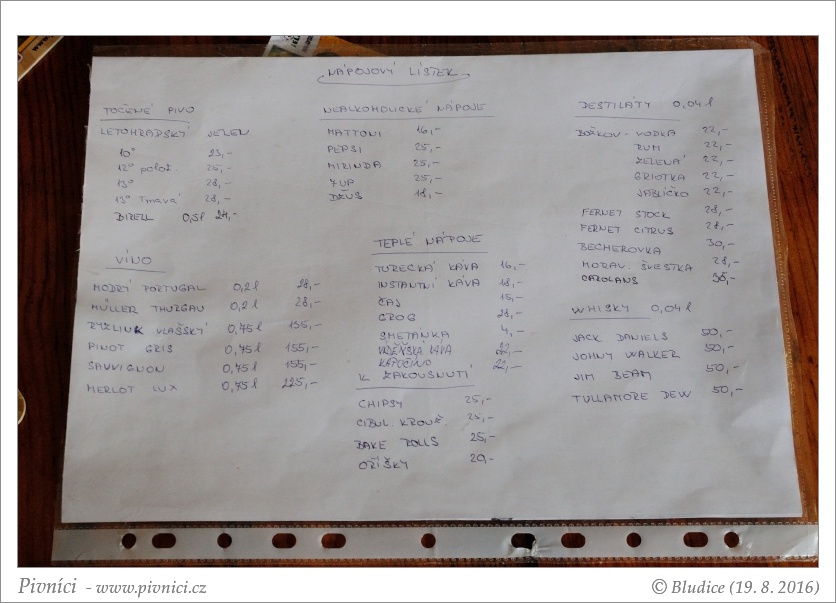 NÁPOJOVÝ LÍSTEK
TOČENÉ PIVO
LETOHRADSKÝ JELEN
10° 23,-
12° polot. 25,-
13° 28,-
13° Tmavá 28,-
BIRELL 0,5l 24,-
VÍNO
MODRÝ PORTUGAL 0,2l 28,-
MÜLLER THURGAU 0,2l 28,-
RYZLINK VLAŠSKÝ 0,75l 155,-
PINOT GRIS 0,75l 155,-
SAUVIGNON 0,75l 155,-
MERLOT LUX 0,75l 225,-
NEALKOHOLICKÉ NÁPOJE
MATTONI 16,-
PEPSI 25,-
MIRINDA 25,-
7UP 25,-
DŽUS 18,-
TEPLÉ NÁPOJE
TURECKÁ KÁVA 16,-
INSTANTNÍ KÁVA 18,-
ČAJ 15,-
GROG 28,-
SMETÁNKA 4,-
VÍDEŇSKÁ KÁVA 22,-
KAPUČÍNO 22,-
K ZAKOUSNUTÍ
CHIPSY 25,-
CIBUL. KROUŽ. 25,-
BAKE ROLLS 25,-
OŘÍŠKY 20,-
DESTILÁTY 0,04l
BOŽKOV - VODKA 22,-
RUM 22,-
ZELENÁ 22,-
GRIOTKA 22,-
JABLÍČKO 22,-
FERNET STOCK 28,-
FERNET CITRUS 28,-
BECHEROVKA 30,-
MORAV. ŠVESTKA 28,-
CAROLANS 35,-
WHISKY 0,04l
JACK DANIELS 50,-
JOHNY WALKER 50,-
JIM BEAM 50,-
TULLAMORE DEW 50,-
Pivníci - www.pivnici.cz
© Bludice (19. 8. 2016)